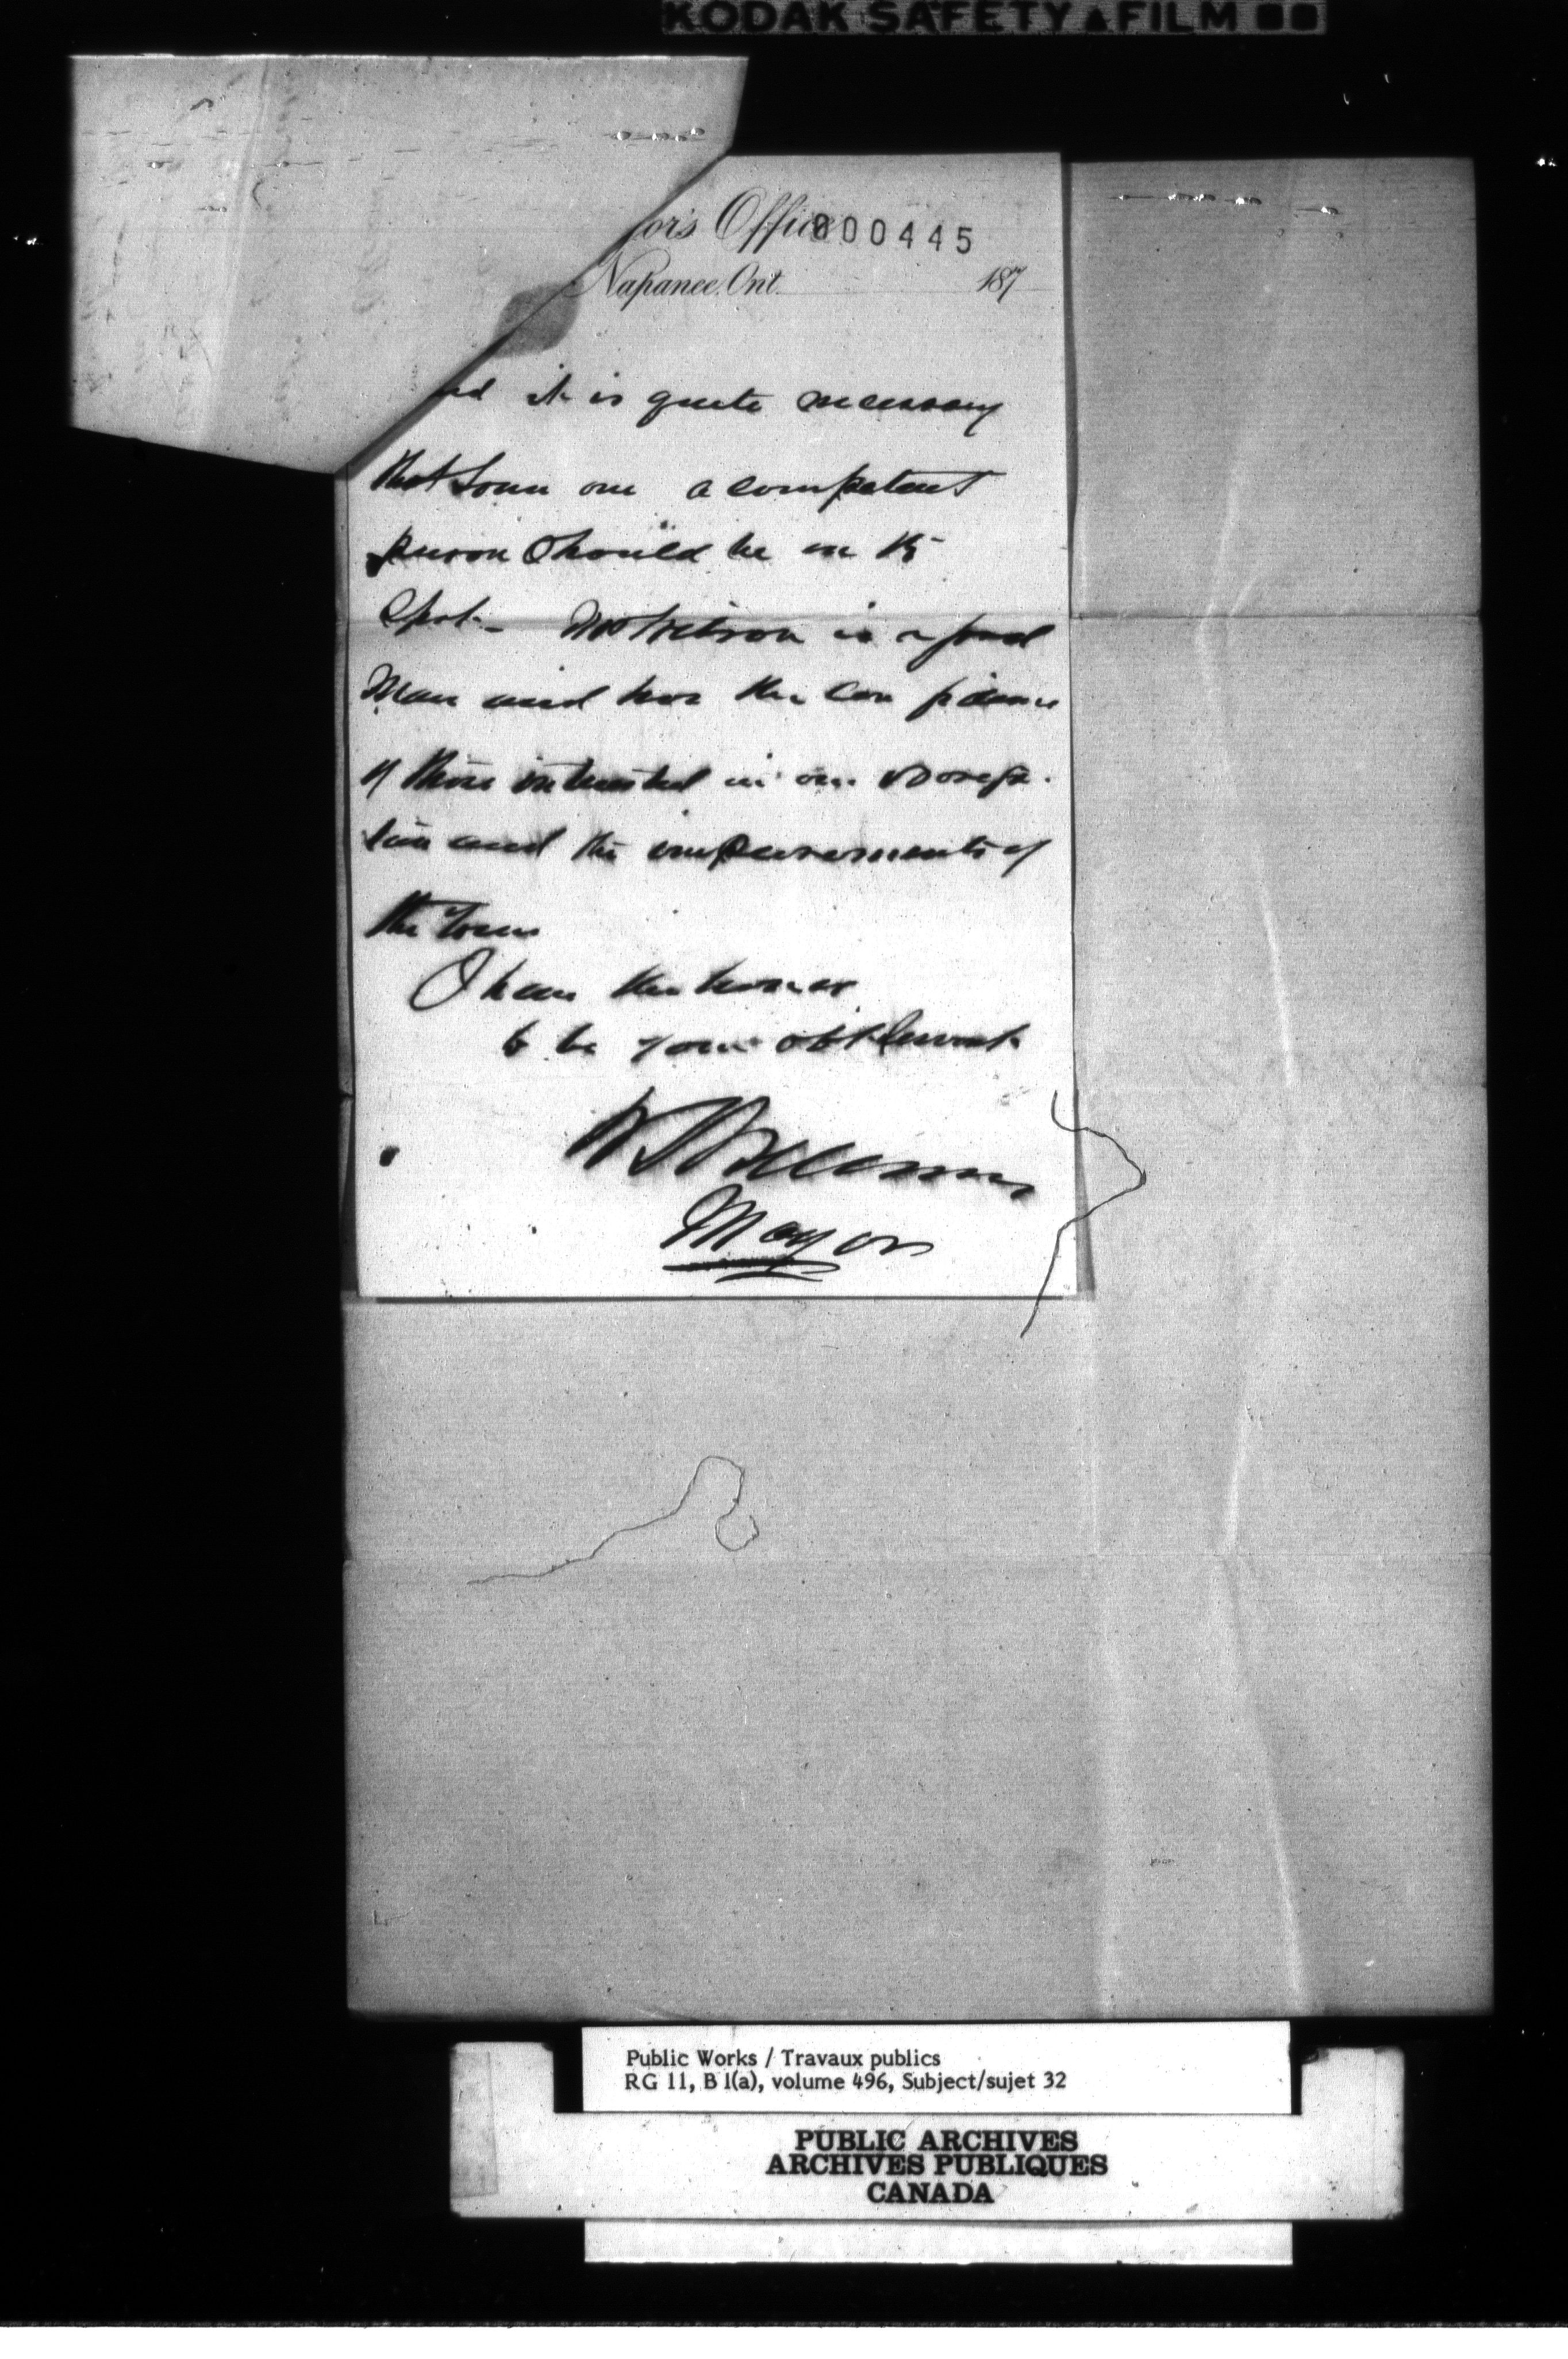 KODAK SAFETY FILM
or's Office
000445
Napanee, Ont. 187
nd it is quite necessary
that some one a competent
person should be on the
Spot - Mr is a good
Man and has the con fidence
of those interested in our
tion and the improvements of
the Town
I have the honor
to be your obt Servant
Mayor
Public Works / Travaux publics
RG 11, B 1(a), volume 496, Subject/sujet 32
PUBLIC ARCHIVES
ARCHIVES PUBLIQUES
CANADA